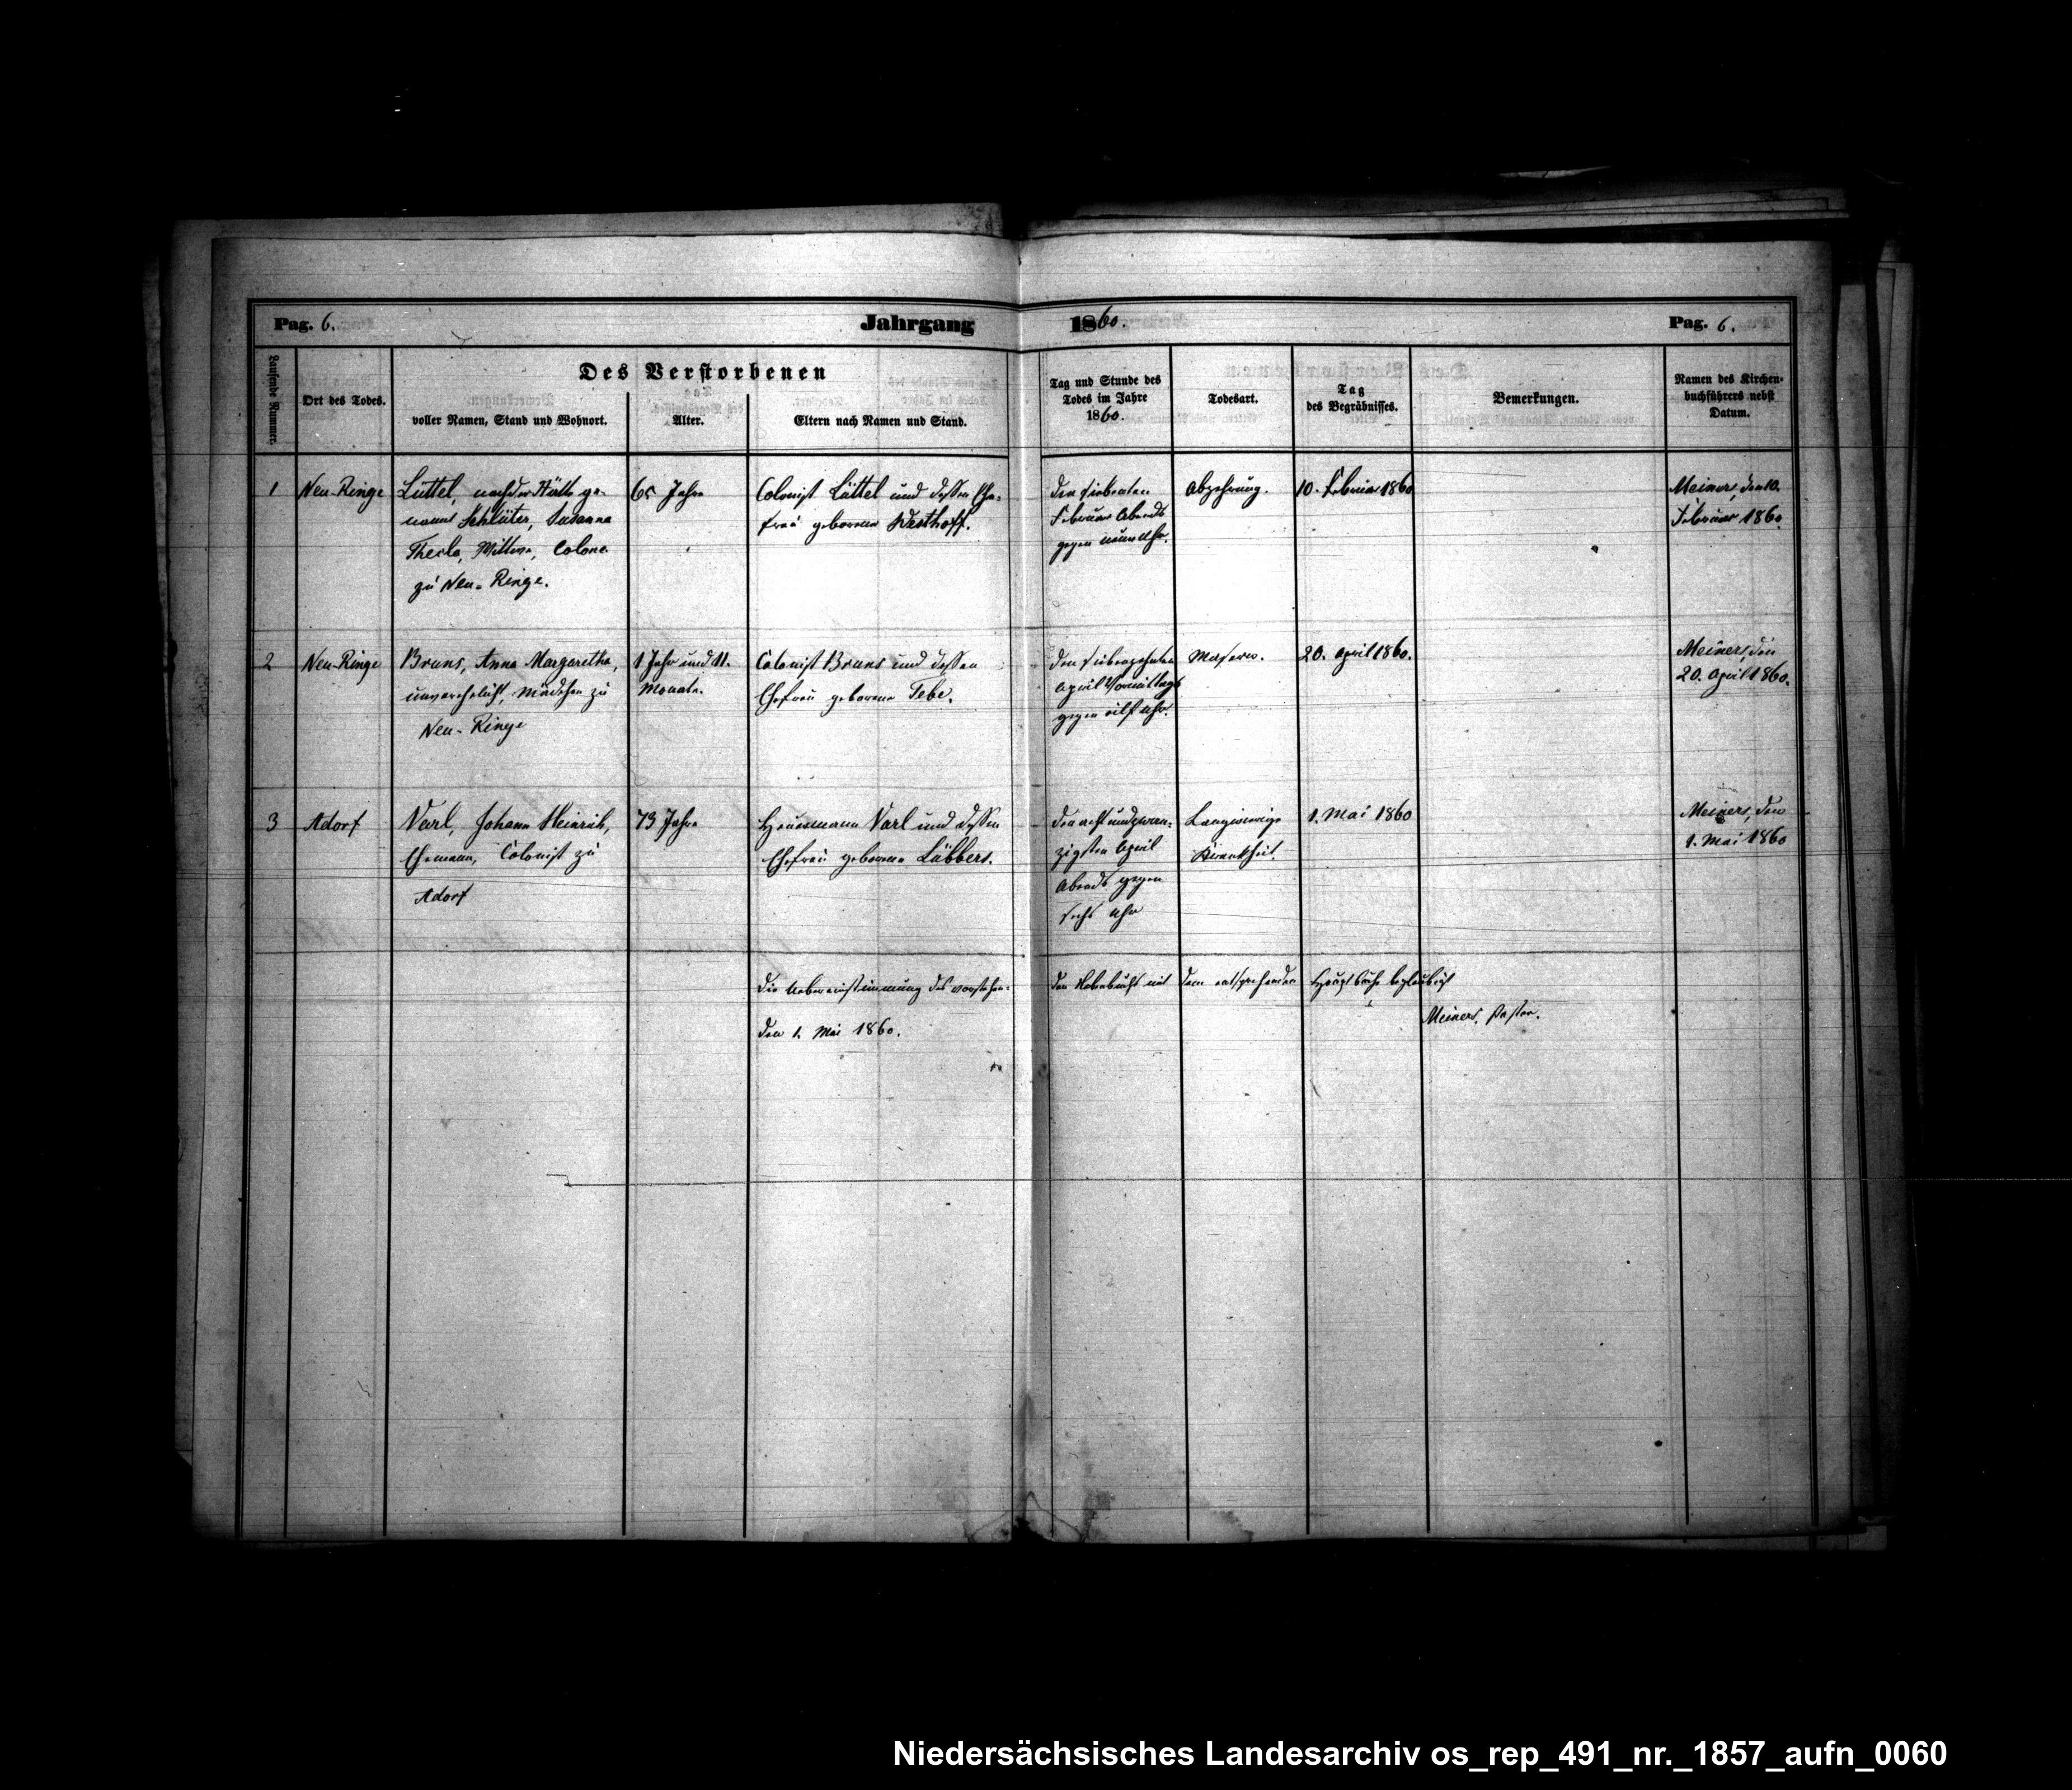 Pag. 6.
Jahrgang 1860.
Pag. 6.
Laufende Nummer.
Ort des Todes.
Des Verstorbenen
voller Namen, Stand und Wohnort.
Alter.
Eltern nach Namen und Stand.
Tag und Stunde des
Todes im Jahre
1860.
Todesart.
Tag
des Begräbnisses.
Bemerkungen.
Namen des Kirchen-
buchführers nebst
Datum.
1
Neu-Ringe
Lüttel, nach der Stätte ge-
nannt Schlüter, Susanna
Thecla, Wittwe, Colona
zu Neu-Ringe.
65 Jahre
Colonist Lüttel und dessen Ehe-
frau geborene Westhoff.
den siebenten
Februar Abends
gegen neun Uhr.
Abzehrung.
10. Februar 1860
Meiners, den 10.
Februar 1860.
2
Neu-Ringe
Bruns, Anna Margaretha,
unverehelicht, Mädchen zu
Neu-Ringe
1 Jahr und 11.
Monate.
Colonist Bruns und dessen
Ehefrau geborene Tebe.
den siebenzehnten
April Vormittags
gegen eilf Uhr.
Masern.
20. April 1860.
Meiners, den
20. April 1860.
3
Adorf
Varl, Johann Heinrich,
Ehemann, Colonist zu
Adorf
73 Jahre
Heuermann Varl und dessen
Ehefrau geborene Lübbers.
den acht und zwan-
zigsten April
Abends gegen
sechs Uhr
Langwierige
Krankheit.
1. Mai 1860
Meiners, den
1. Mai 1860
Die Uebereinstimmung des vorstehen-
den Nebenbuchs mit dem entsprechenden Hauptbuche beglaubigt
den 1. Mai 1860.
Meiners, Pastor.
Niedersächsisches Landesarchiv os_rep_491_nr._1857_aufn_0060